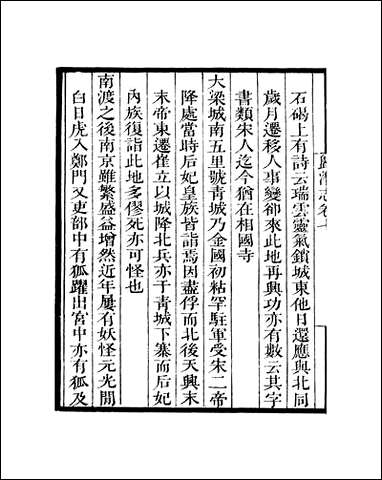 歸潛志卷七
石碣上有詩云瑞雲靈氣鎖城東他日還應與北同
歲月遷移人事變卻來此地再興功亦有數云其字
書類宋人迄今猶在相國寺
大梁城南五里號靑城乃金國初粘罕駐軍受宋二帝
降處當時后妃皇族皆詣焉因盡俘而北後天興末
末帝東遷崔立以城降北兵亦于靑城下寨而后妃
內族復詣此地多僇死亦可怪也
南渡之後南京雖繁盛益增然近年屢有妖怪元光間
白日虎入鄭門又吏部中有狐躍出宮中亦有狐及